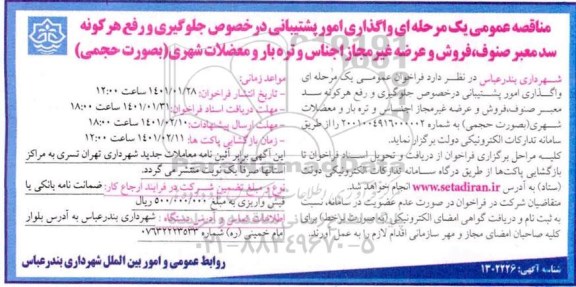 مناقصه عمومی یک مرحله ای واگذاری امور پشتیبانی در خصوص جلوگیری و رفع هرگونه
سد معبر صنوف، فروش و عرضه غیر مجاز اجناس و تره بار و معضلات شهری (بصورت حجمی)
شهرداری بندرعباس در نظر دارد فراخوان عمومی یک مرحله ای
واگذاری امور پشتیبانی درخصوص جلوگیری و رفع هرگونه سد
معبر صنوف، فروش و عرضه غیرمجاز اجناس و تره بار و معضلات
شهری (بصورت حجمی) به شماره را از طریق
سامانه تدارکات الکترونیکی دولت برگزار نماید.
کلیه مراحل برگزاری فراخوان از دریافت و تحویل اسناد فراخوان تا
بازگشایی پاکت‌ها از طریق درگاه سامانه تدارکات الکترونیکی دولت
(ستاد) به آدرس www.setadiran.ir انجام خواهد شد.
متقاضیان شرکت در فراخوان در صورت عدم عضویت در سامانه، نسبت
به ثبت نام و دریافت گواهی امضای الکترونیکی (بصورت برخط) برای
کلیه صاحبان امضای مجاز و مهر سازمانی اقدام لازم را به عمل آورند.
مواعد زمانی:
- تاریخ انتشار فراخوان: ۱۴۰۱/۰۱/۲۸ ساعت ۱۲:۰۰
- مهلت دریافت اسناد فراخوان: ۱۴۰۱/۰۱/۳۱ ساعت ۱۸:۰۰
- مهلت ارسال پیشنهادات: ۱۴۰۱/۰۲/۱۰ ساعت ۱۸:۰۰
- زمان بازگشایی پاکت ها: ۱۴۰۱/۰۲/۱۱ ساعت ۱۲:۰۰
این آگهی برابر آئین نامه معاملات جدید شهرداری تهران تسری به مراکز
استانها صرفا یک نوبت منتشر می گردد.
نوع و مبلغ تضمین شرکت در فرایند ارجاع کار: ضمانت نامه بانکی یا
فیش واریزی به مبلغ ۵۰۰/۰۰۰/۰۰۰ ریال
اطلاعات تماس و آدرس دستگاه: شهرداری بندرعباس به آدرس بلوار
امام خمینی (ره) شماره ۰۷۶۳۲۲۲۳۵۳۳
روابط عمومی و امور بین الملل شهرداری بندرعباس
شناسه آگهی: ۱۳۰۲۲۲۶
۰۲۱-۸۸۳۴۹۶۷۰-۵